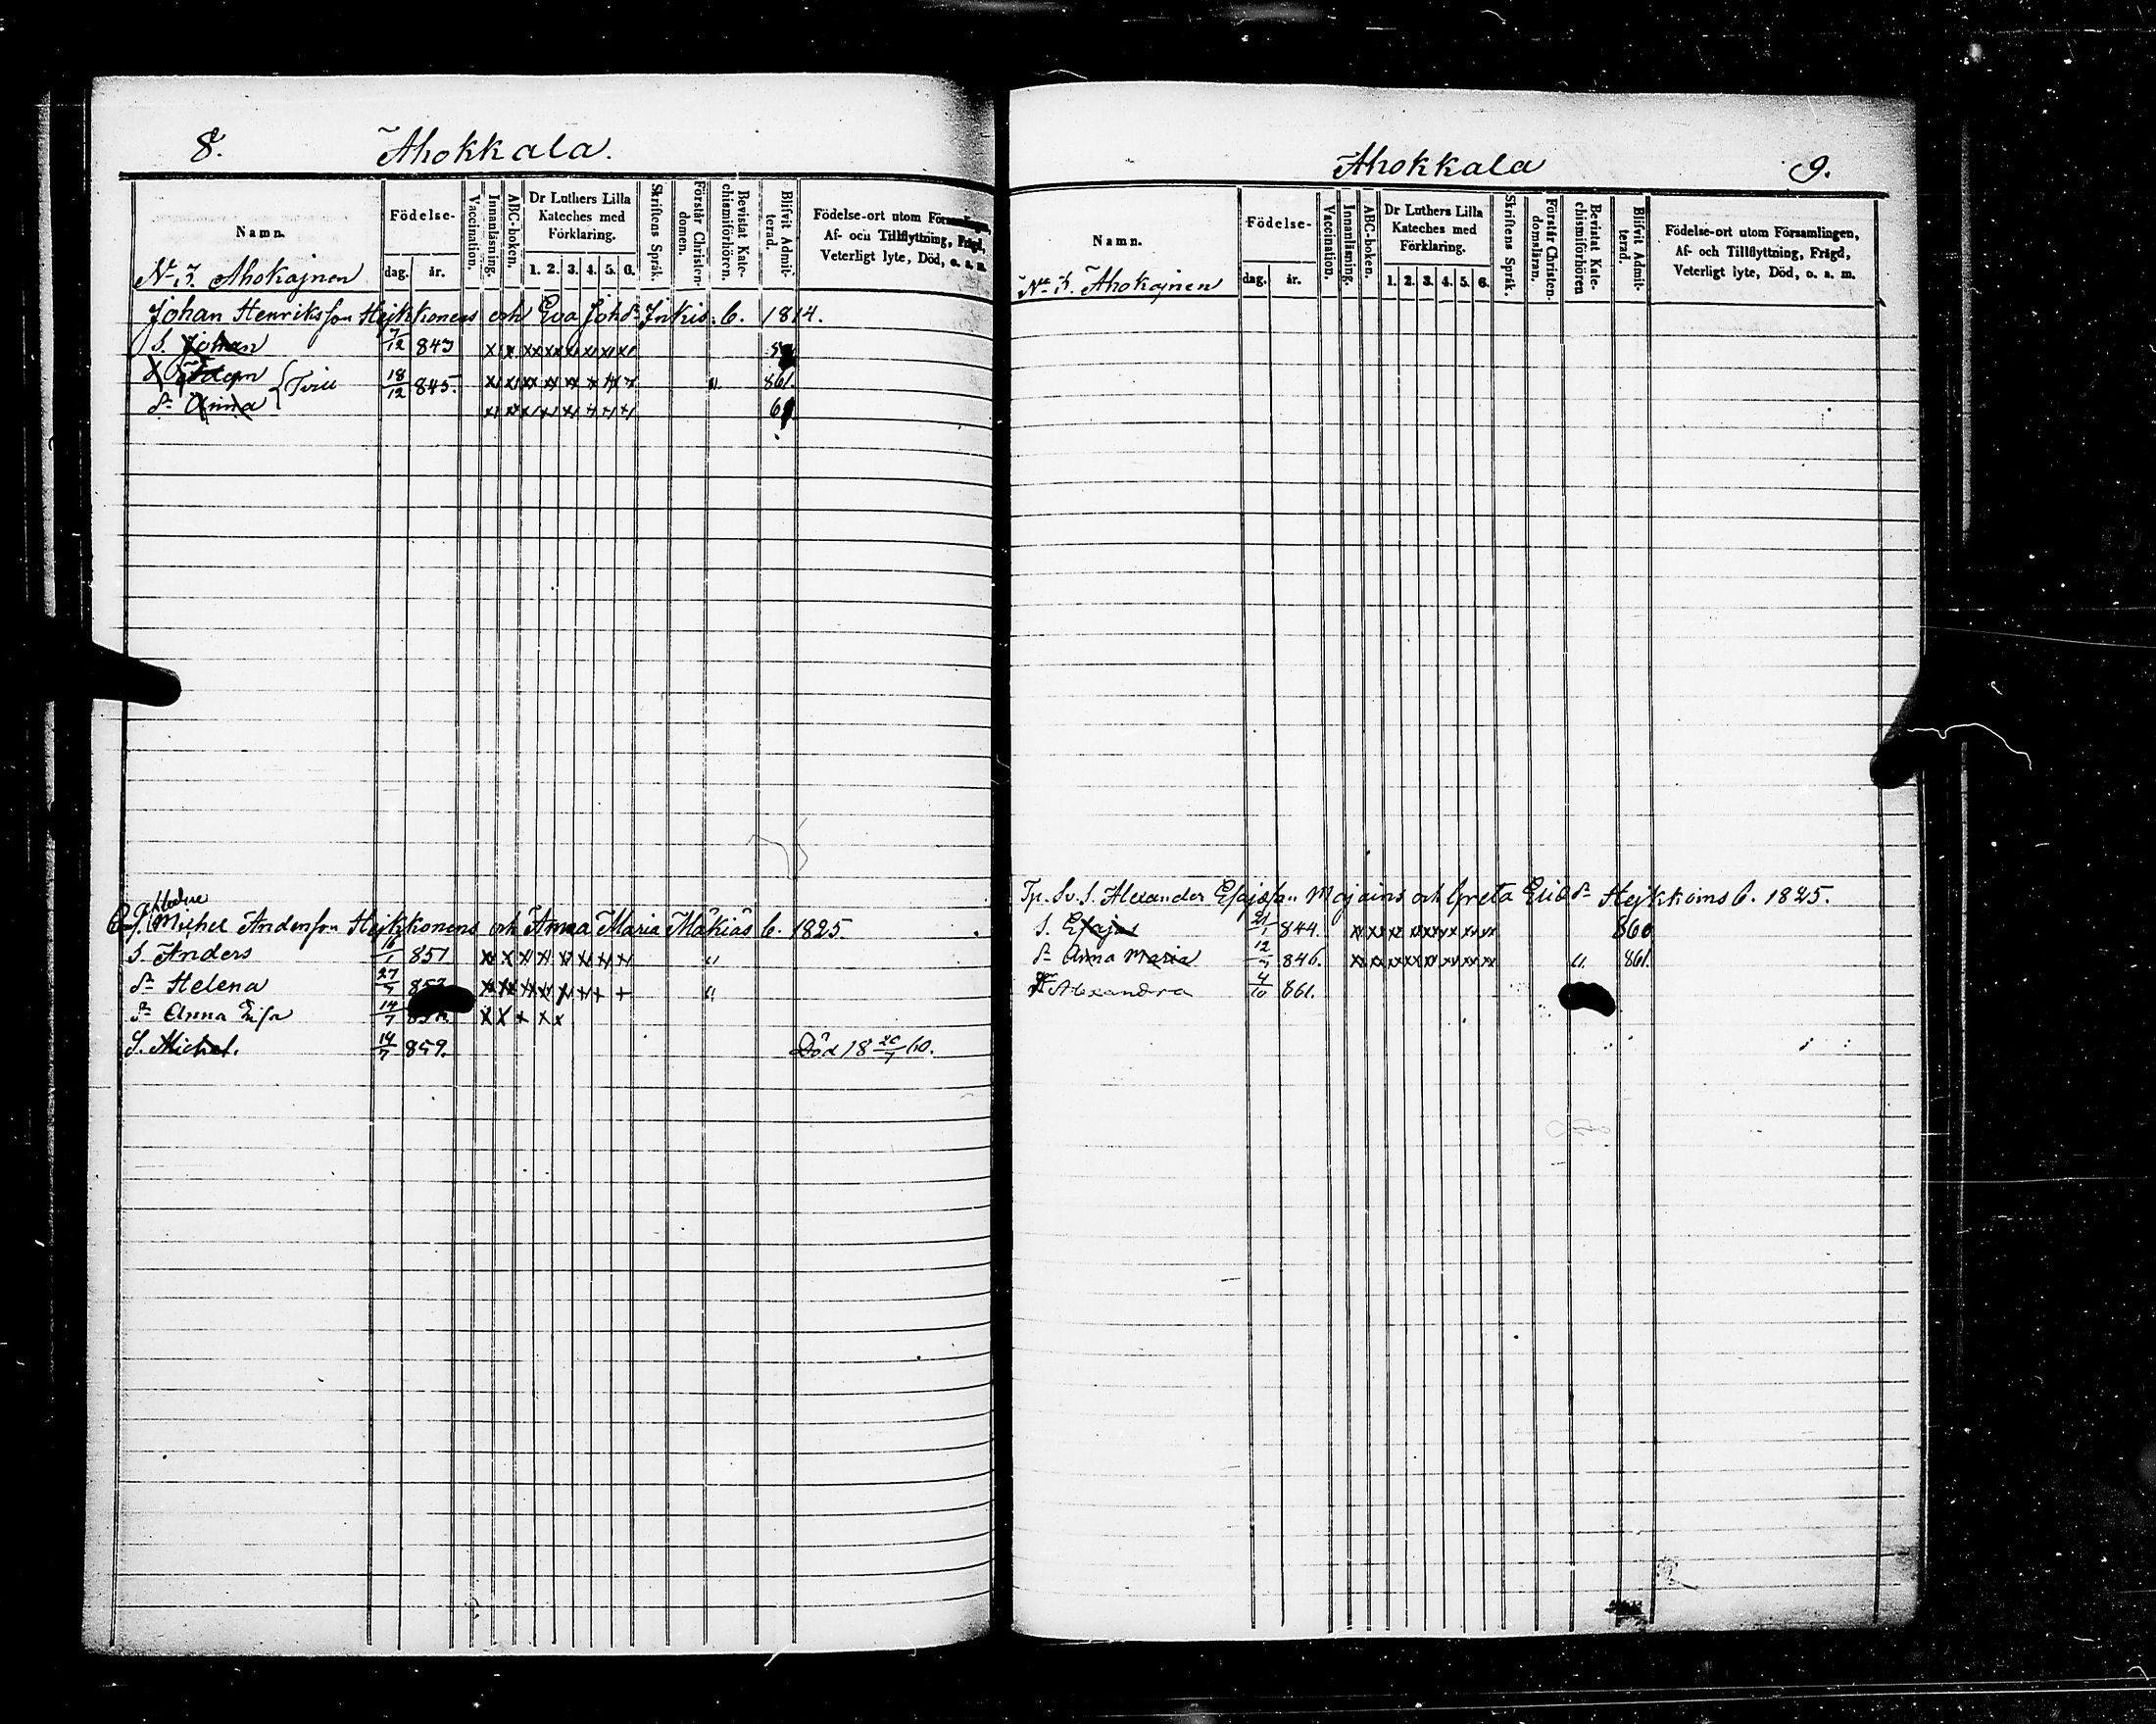 8. Ahokkala.
Namn.
Födelse-
dag. år.
Vaccination.
Innanläsning.
ABC-boken.
Dr Luthers Lilla
Kateches med
Förklaring.
1. 2. 3. 4. 5. 6.
Skriftens Språk.
Förstår Christen-
domen.
Bevistat Kate-
chismiförhören.
Blifvit Admit-
terad.
Födelse-ort utom Församlingen,
Af- och Tillflyttning, Frägd,
Veterligt lyte, Död, o. s. m.
No 3. Ahokajnen
Johan Henriksson Hejkkonens och Eva Johdr Inkis. b. 1814.
S. Johan 7/12 843 x x xx xx x x x x
18/12 845. x x xx xx x x x x " 861.
dr Anna x x x x x x x x
Michel Andersson Hejkkonens och Anna Maria Mäkiäs b. 1825.
S. Anders 16/1 851 x x x x x x x x "
dr Helena 27/7 x x x x x x x x "
dr Anna 14/7 x x x x x
S. Michel. 14/7 859. Död 18 20/7 60.
Ahokkala 9.
Namn.
Födelse-
dag. år.
Vaccination.
Innanläsning.
ABC-boken.
Dr Luthers Lilla
Kateches med
Förklaring.
1. 2. 3. 4. 5. 6.
Skriftens Språk.
Förstår Christen-
domsläran.
Bevistat Kate-
chismiförhören
Blifvit Admit-
terad.
Födelse-ort utom Församlingen,
Af- och Tillflyttning, Frägd,
Veterligt lyte, Död, o. s. m.
No 3. Ahokajnen
Alexander Esajæsn och Greta Ericdr Hejkkoins b. 1825.
S. Esajas 21/1 844. x x x x x x x x 860
dr Anna Maria 12/7 846. x x x x x x x x " 861.
Alexandra 4/10 861.